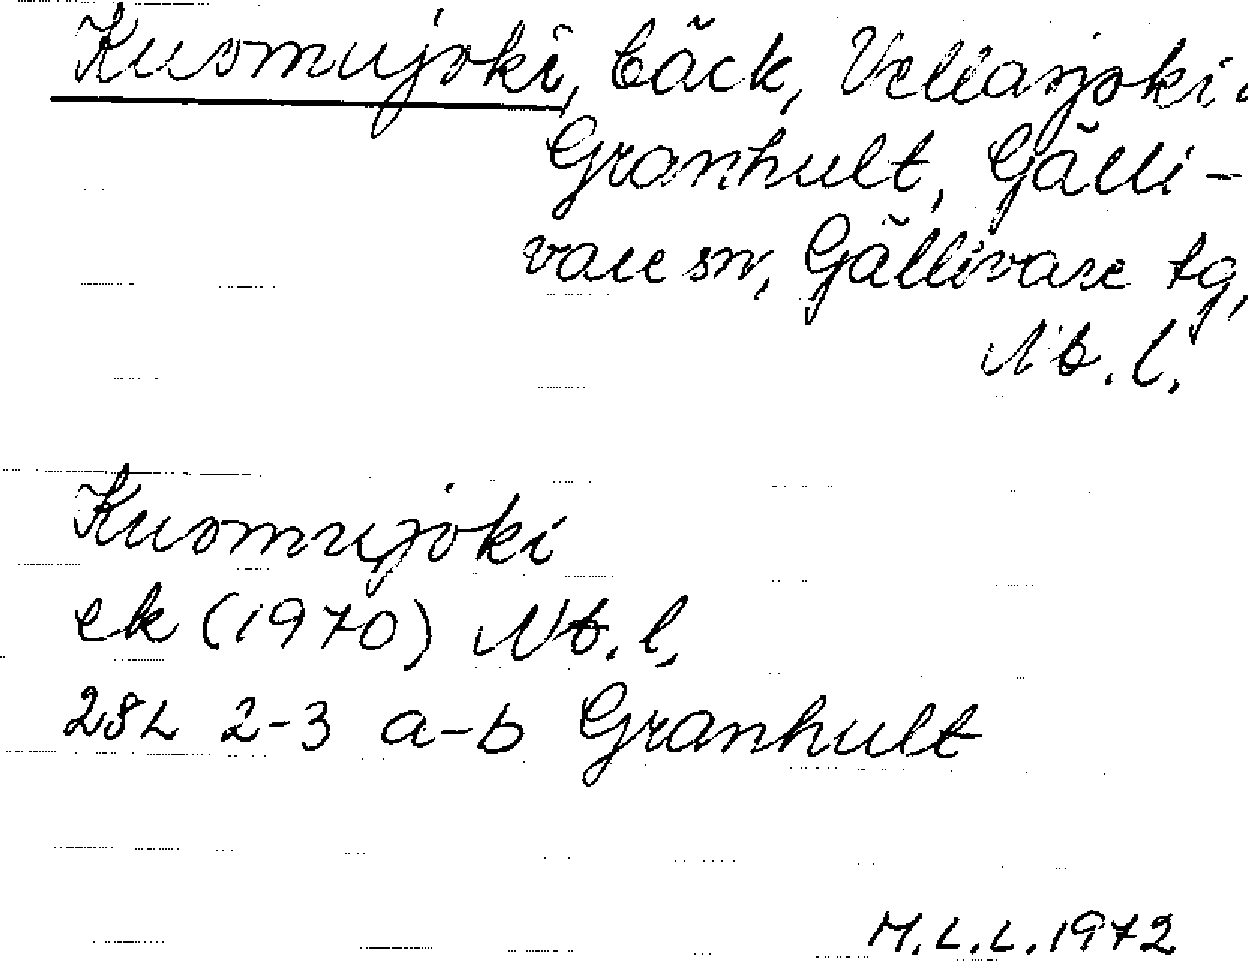 Kuomujoki, bäck, Vettasjoki-
Granhult, Gälli-
vare sn, Gällivare tg,
Nb. l.
Kuomujoki
ek (1970) Nb. l.
28L 2-3 a-b Granhult
M.L.L. 1972